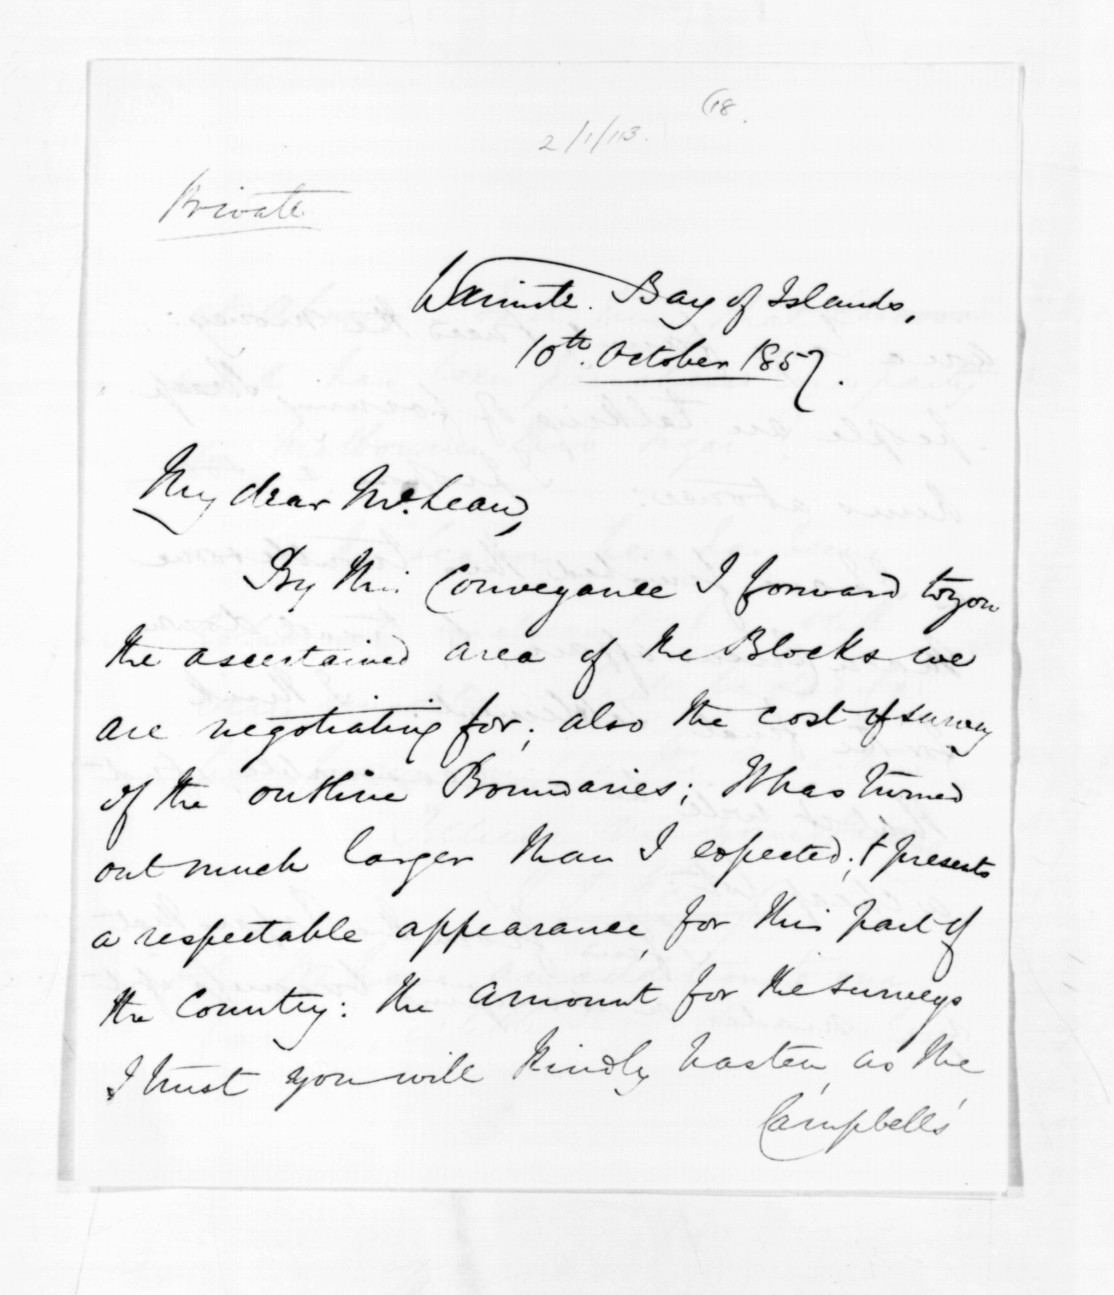 (18.
2/1/113.
Private
Waimate Bay of Islands,
10th. October 1857.
My dear McLean,
By this Conveyance I forward to you
the ascertained area of the Blocks we
are negotiating for; also the cost of survey
of the outline Boundaries; It has turned
out much larger than I expected; & presents
a respectable appearance for this part of
the Country: the amount for the surveys
I trust you will kindly hasten, as the
Campbell's